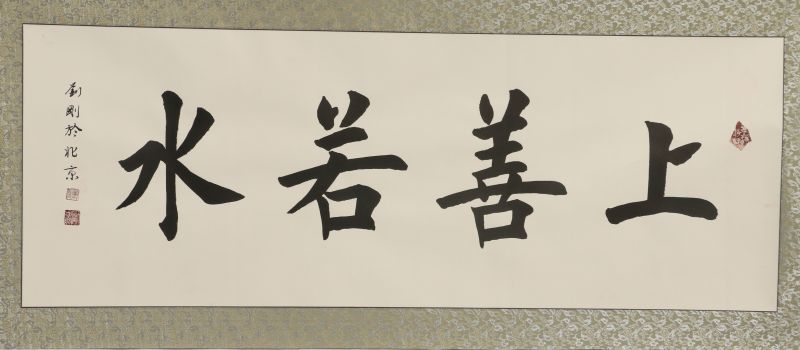 上善若水
劉剛於北京